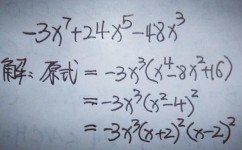 -3x⁷+24x⁵-48x³
解：原式=-3x³(x⁴-8x²+16)
=-3x³(x²-4)²
=-3x³(x+2)²(x-2)²